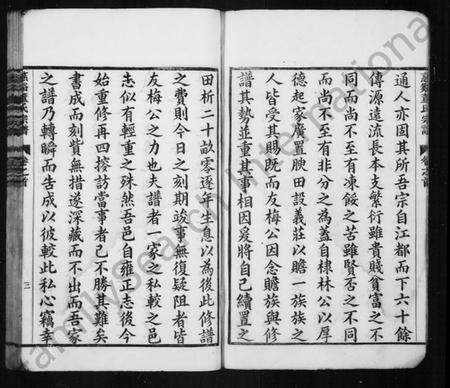 通人亦固其所吾宗自江都而下六十餘
傳源遠流長本支繁衍雖貴賤貧富之不
同而尚不至有凍餒之苦雖賢否之不同
而尚不至有非分之為蓋自棣林公以厚
德起家廣置腴田設義莊以贍一族之
人皆受其賜既而友梅公因念贍族與修
譜其勢並重其事相因爰將自己續置之
田析二十畝零逐年生息以為後此修譜
之費則今日之刻期竣事無復疑阻者皆
友梅公之力也夫譜者一家之私較之邑
志似有輕重之殊然吾邑自雍正志後今
始重修再四按訪當事者已不勝其難矣
書成而刻貲無措遂深藏而不出而吾家
之譜乃轉瞬而告成以彼較此私心竊幸
三
FamilySearch International